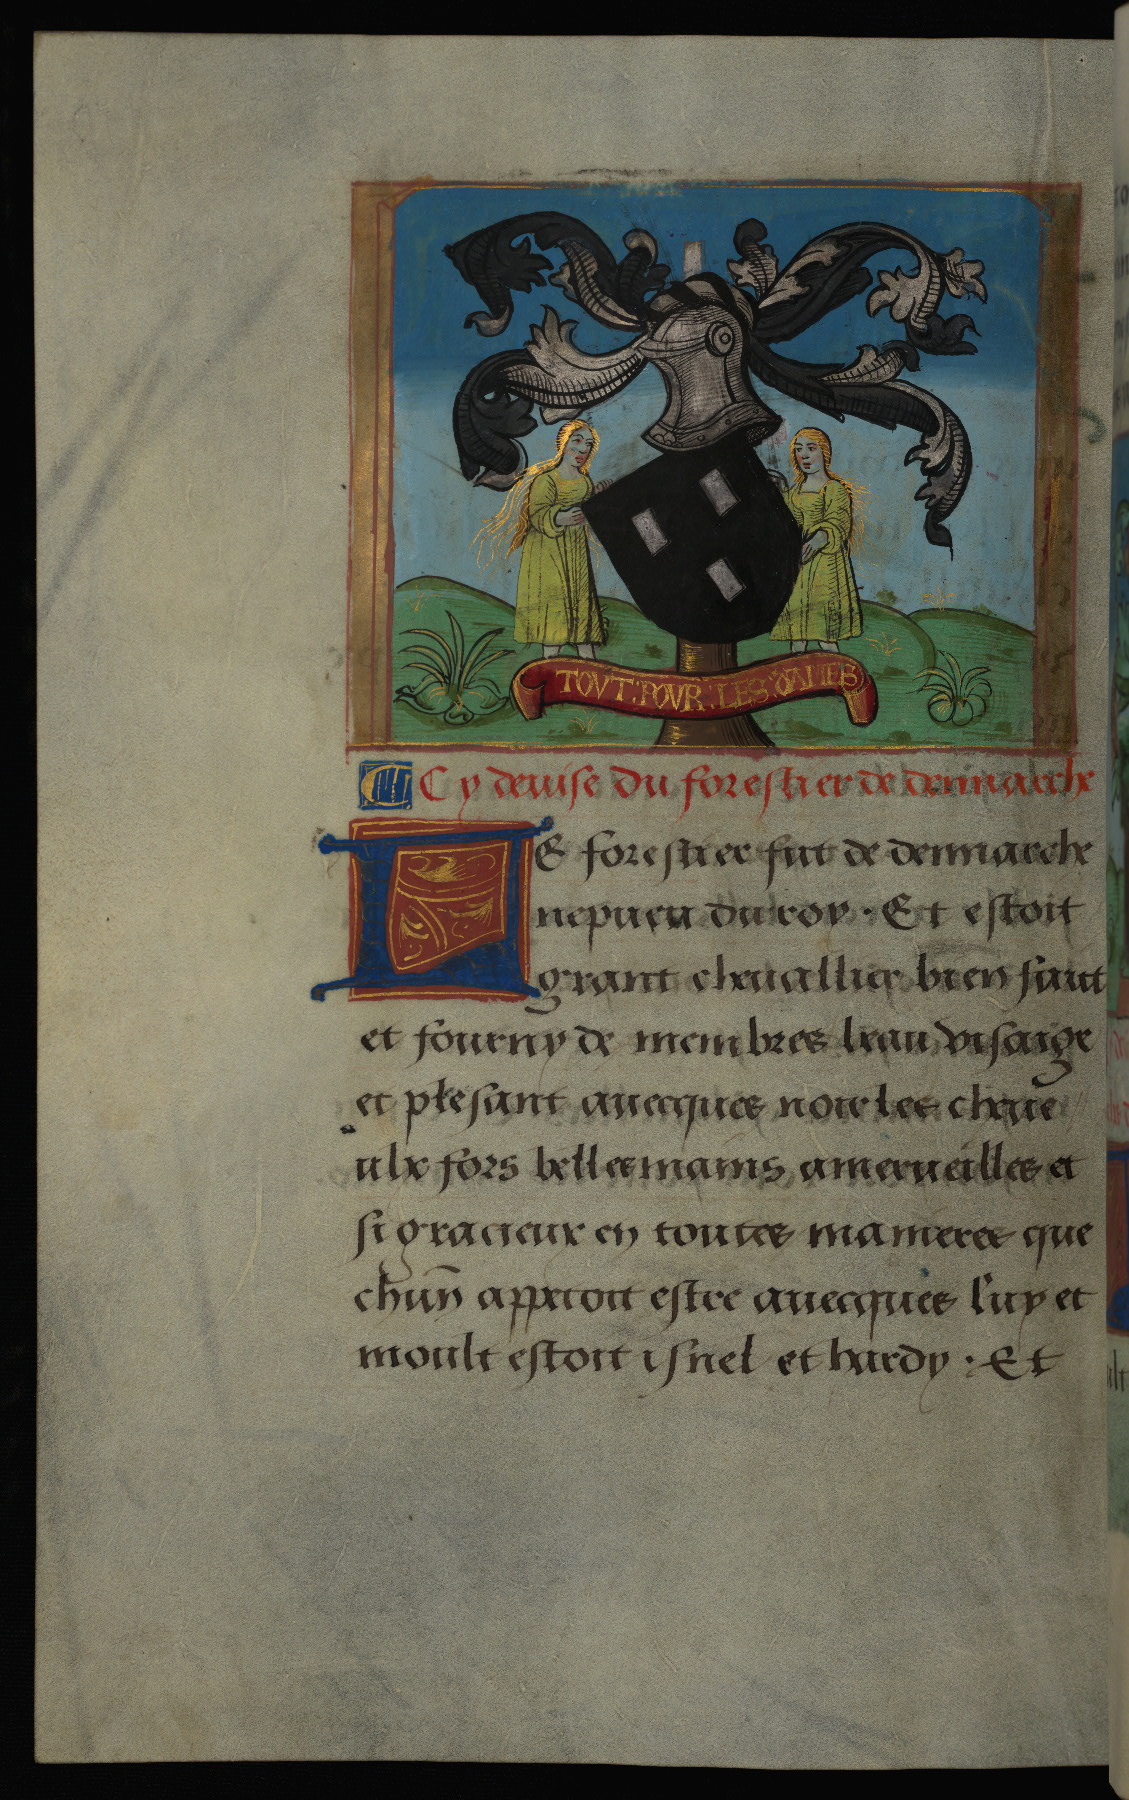 TOVT POVR LES DAMES
Cy deuise du forestier de dennarche
LE forestier fut de dennarche
nepueu du roy · Et estoit
grant cheuallier bien faict
et fourny de membres beau visaige
et plesant auecques noir les cheue
ulx fors belles mains a merueilles et
si gracieux en toutes manieres que
chūn appetoit estre auecques luy et
moult estoit isnel et hardy · Et